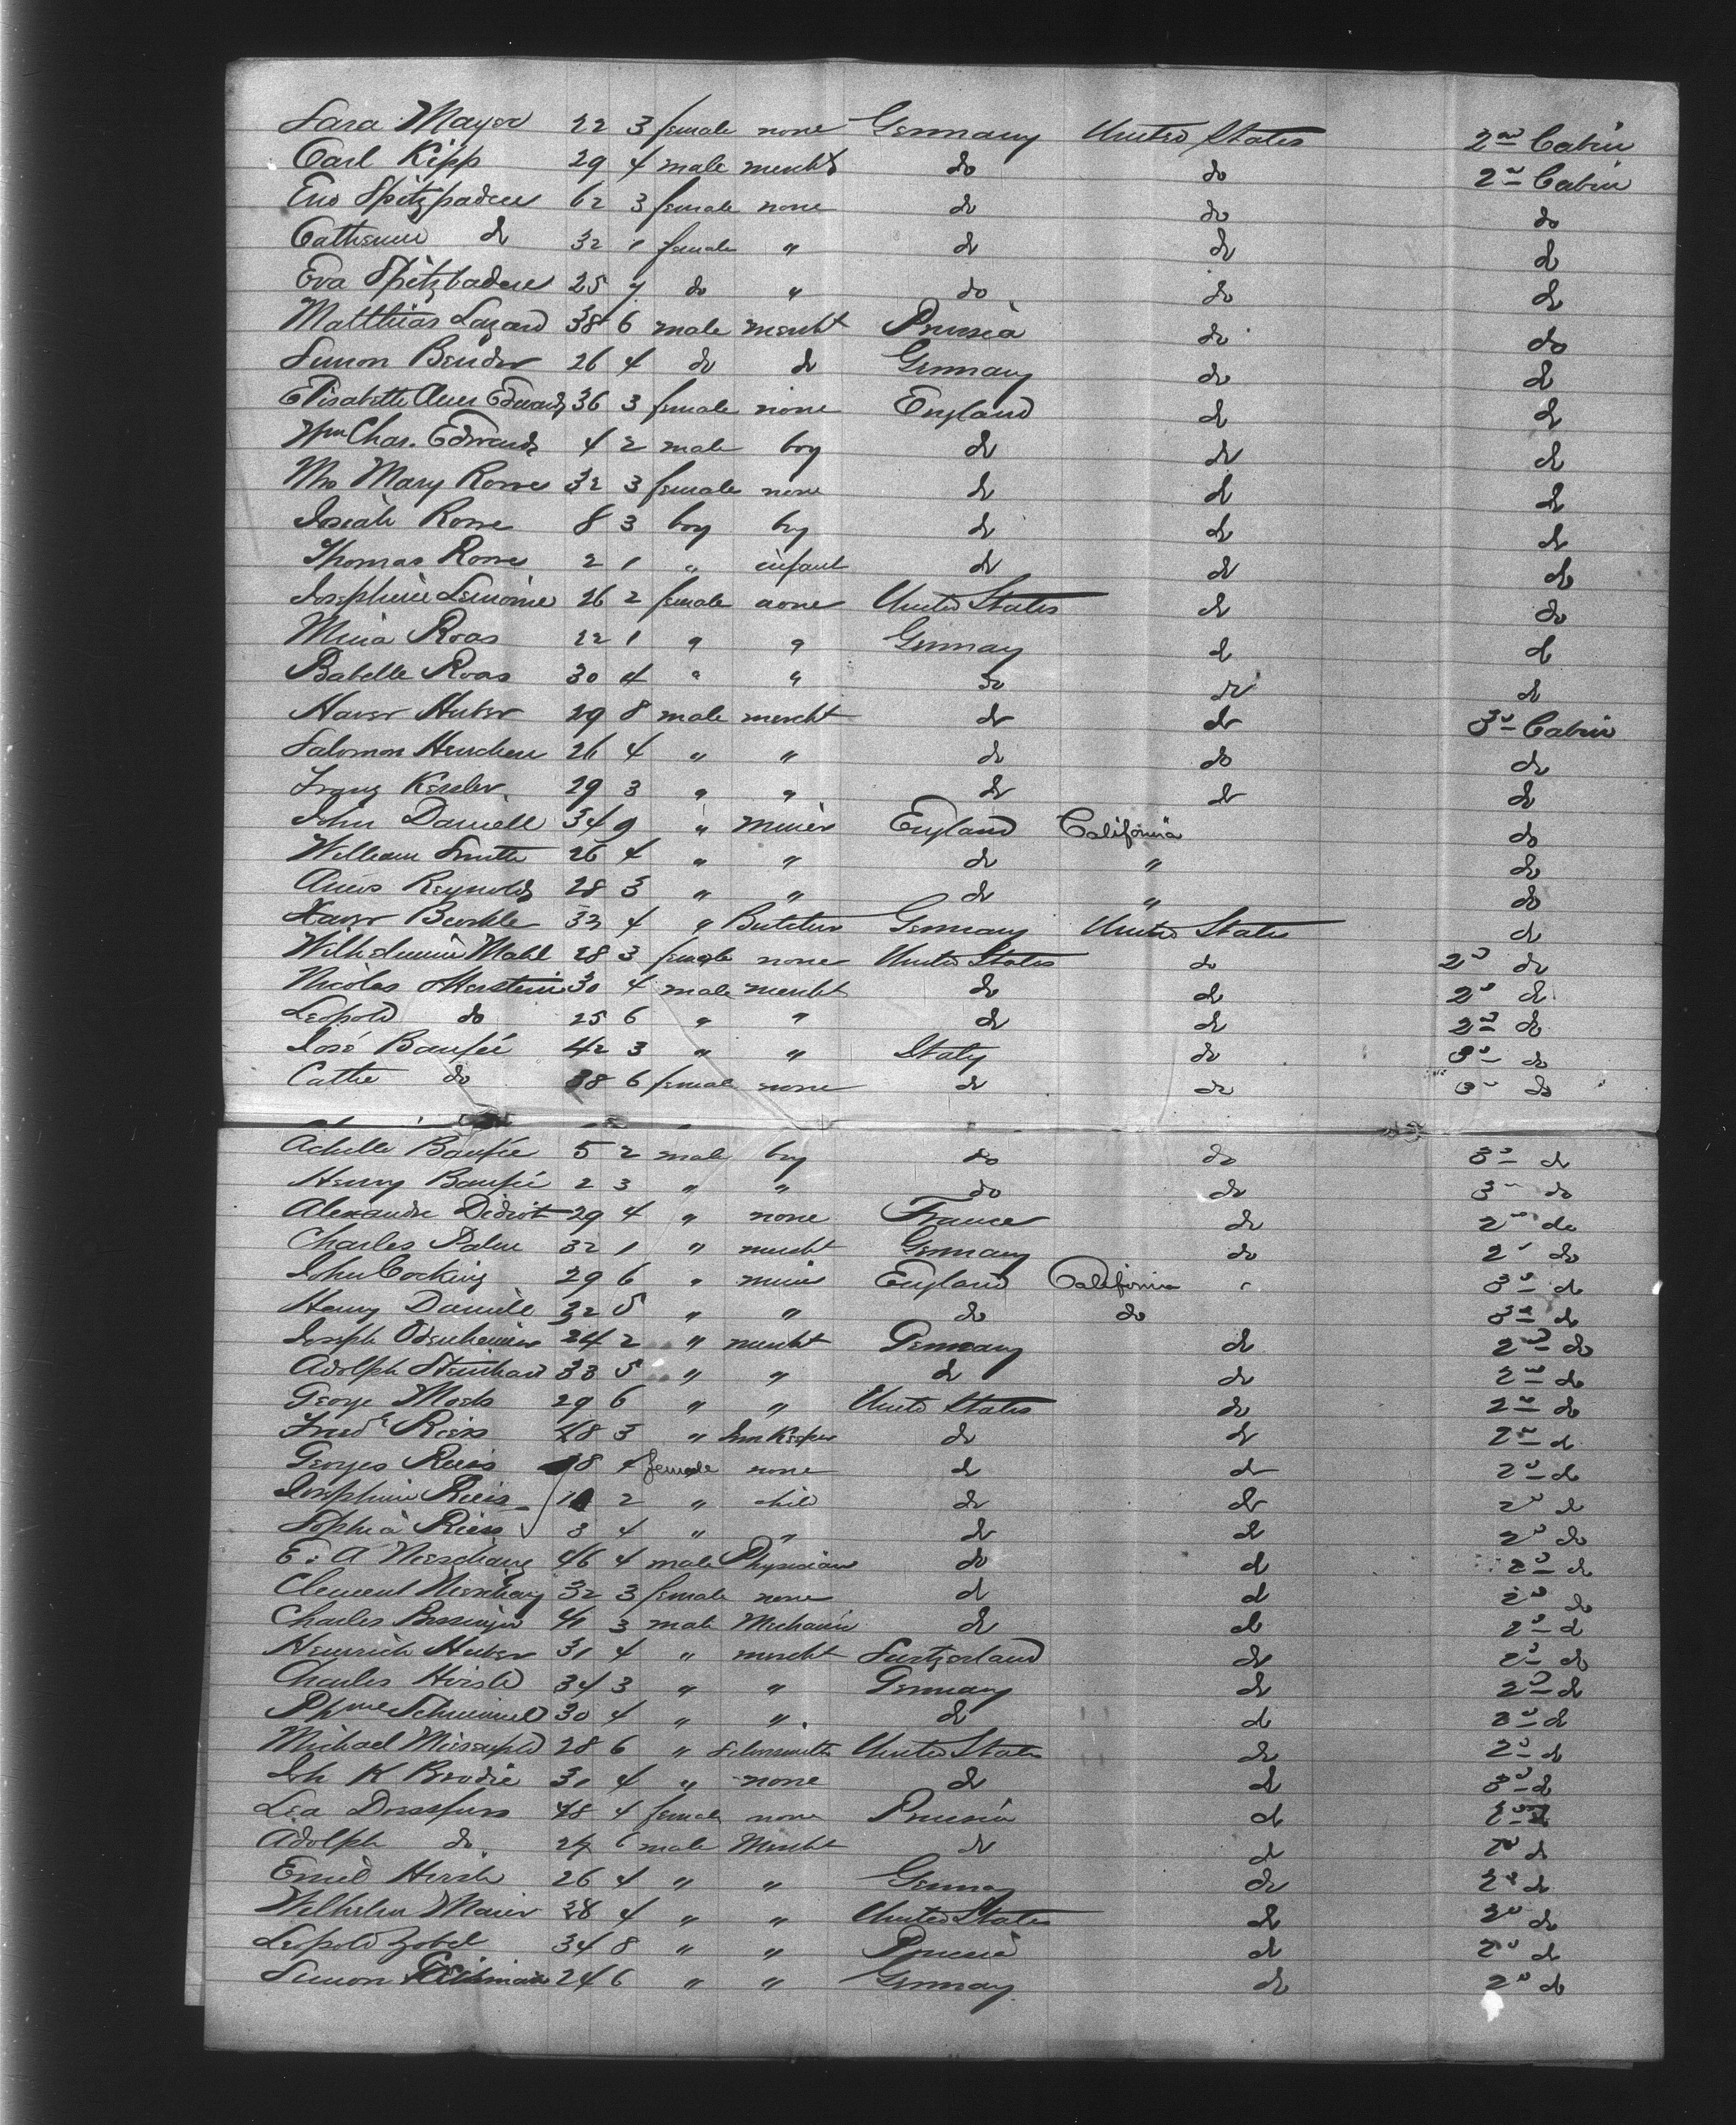 Sara Mayer 22 3 female none Germany United States 2nd Cabin
Carl Kipp 29 4 male mercht do do 2d Cabin
62 3 female none do do do
Catherine do 32 1 female " do do do
Eva Spitzbadere 25 7 do " do do do
Matthias Lazard 38 6 male mercht Prussia do do
Simon Bender 26 4 do do Germany do do
Elisabeth Edwards 36 3 female none England do do
Wm Chas. Edwards 4 2 male boy do do do
Mrs Mary Rowe 32 3 female none do do do
Josiah Rowe 8 3 boy boy do do do
Thomas Rowe 2 1 " infant do do do
Josephine Lemoine 26 2 female none United States do do
Mina Roas 22 1 " " Germany do do
Babelle Roas 30 4 " " do do do
Xaver Huber 29 8 male mercht do do 3d Cabin
Salomon 26 4 " " do do do
Franz Kessler 29 3 " " do do do
John Daniell 34 9 " miner England California do
William Smith 26 4 " " do " do
Reynolds 28 3 " " do " do
Xaver 33 4 " Butcher Germany United States do
Wilhelmine Mahl 28 3 female none United States do 2d do
Nicolas 30 4 male mercht do do 2d do
Leopold do 25 6 " " do do 2d do
José Baufié 42 3 " " Italy do 3d do
Cathe do 38 6 female none do do 3d do
Achille Baufie 5 2 male boy do do 3d do
Henry Baufié 2 3 " " do do 3d do
Alexandre Didiot 29 4 " none France do 2d do
Charles 32 1 " mercht Germany do 2d do
John Cocking 29 6 " miner England California " 3d do
Henry Daniell 32 5 " " do do 3d do
Joseph Odenheimer 24 2 " mercht Germany do 2nd do
Adolph 33 5 " " do do 2nd do
George 29 6 " " United States do 2nd do
Fredk Riess 48 3 " Inn Keeper do do 2d do
Georges Reiss 8 4 female none do do 2d do
Josephine Reiss 2 " child do do 2d do
Sophia Riess 3 4 " " do do 2d do
E. A. 46 4 male Physician do do 2d do
Clement 32 3 female none do do 2d do
Charles 41 3 male Mechanic do do 2d do
Heinrich Huber 31 4 " mercht Switzerland do 2d do
Charles Hirsch 34 3 " " Germany do 2d do
30 4 " " do do do
Michael 28 6 " Silversmith United States do 2d do
Joh K Brodie 31 4 " none do do 3d do
Lea 48 4 female none Prussia do
Adolph do 24 6 male Mercht do do 2d do
Emil Hirsh 26 4 " " Germany do 2d do
Wilhelm Maier 28 4 " " United States do do
Leopold Zobel 34 8 " " Prussia do 2d do
Simon 24 6 " " Germany do 2d do